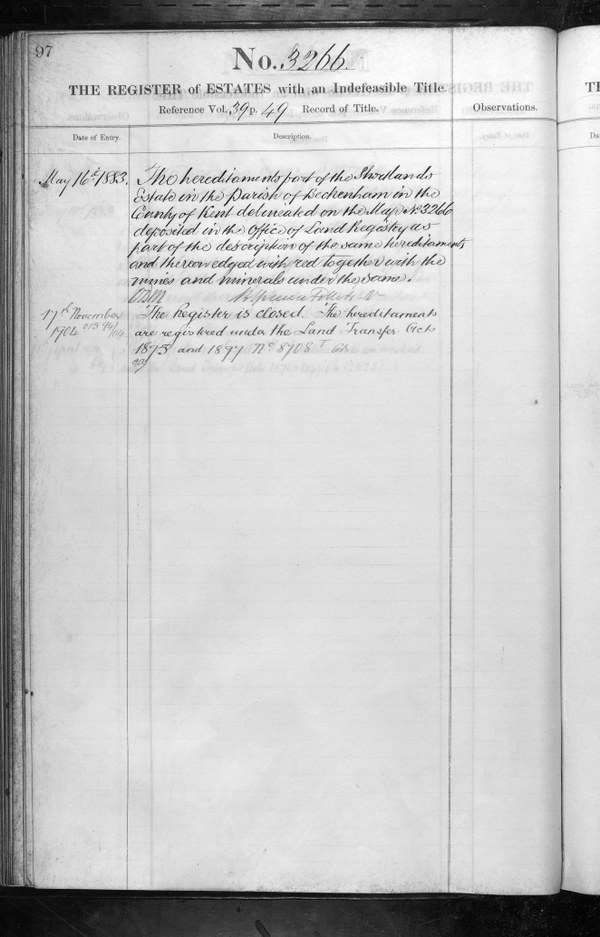 97
No. 3266.
THE REGISTER of ESTATES with an Indefeasible Title.
Reference Vol. 39 p. 49 Record of Title.
Observations.
Date of Entry.
Description.
May 16th 1883.
The hereditaments part of the Shortlands
Estate in the Parish of Beckenham in the
County of Kent delineated on the Map No. 3266
deposited in the Office of Land Registry as
part of the description of the same hereditaments
and thereon edged with red together with the
mines and minerals under the same.
17th November
1904
The Register is closed. The hereditaments
are registered under the Land Transfer Acts
1875 and 1897 No 8708